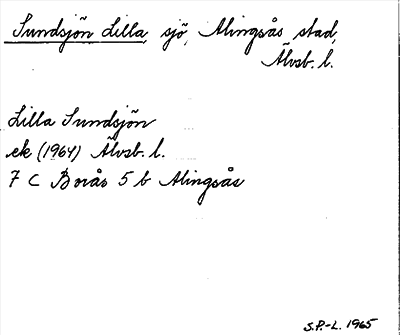 Sundsjön Lilla, sjö, Alingsås stad,
Älvsb. l.
Lilla Sundsjön
ek (1964) Älvsb. l.
7 C Borås 5 b Alingsås
S.P.-L. 1965